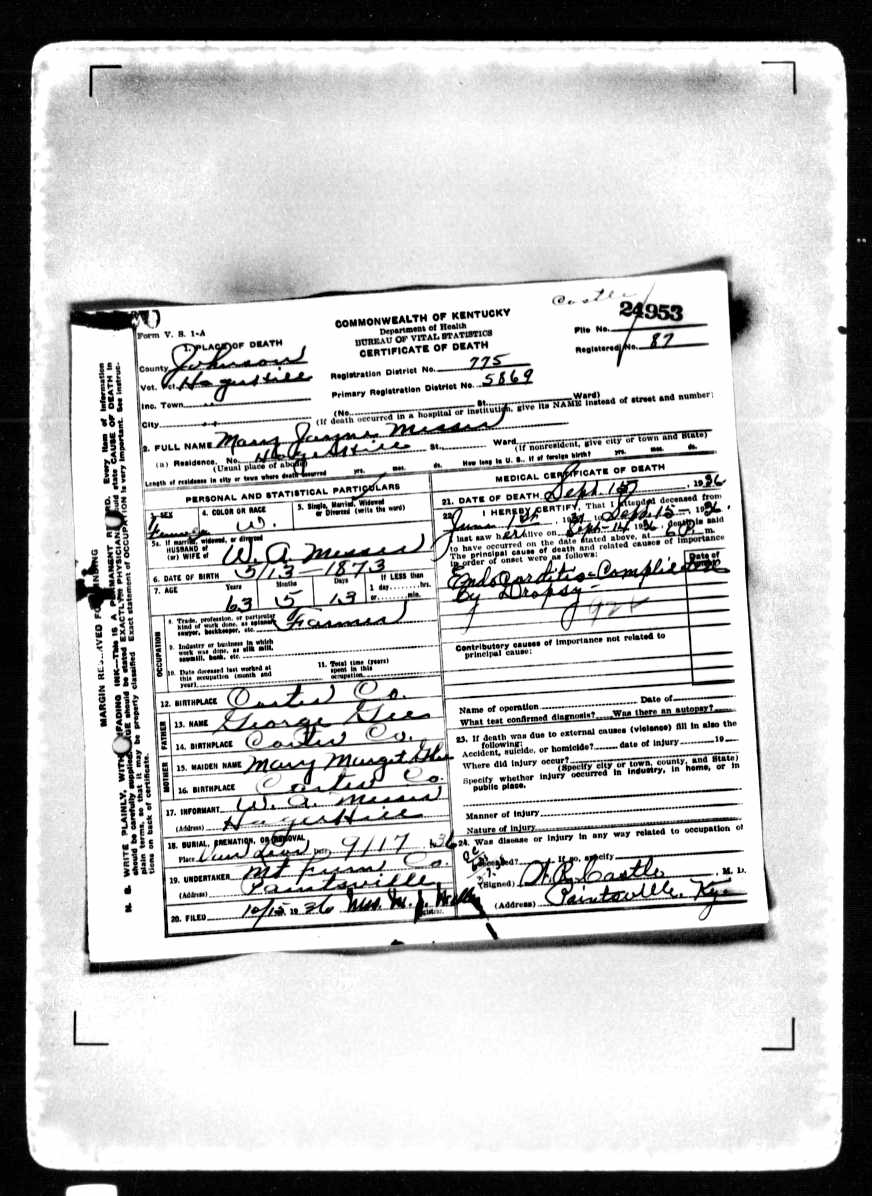 Castle
24953
Form V. S. 1-A
COMMONWEALTH OF KENTUCKY
Department of Health
BUREAU OF VITAL STATISTICS
CERTIFICATE OF DEATH
File No.
Registered No. 87
1. PLACE OF DEATH
County Johnson
Vot. Pct. Hagerhill
Inc. Town
City
Registration District No. 775
Primary Registration District No. 5869
(No. St. Ward)
(If death occurred in a hospital or institution, give its NAME instead of street and number)
2. FULL NAME Mary Jayne
(a) Residence. No. Hagerhill St., Ward
(Usual place of abode) (If nonresident, give city or town and State)
Length of residence in city or town where death occurred yrs. mos. ds. How long in U. S., if of foreign birth? yrs. mos. ds.
PERSONAL AND STATISTICAL PARTICULARS
3. SEX
4. COLOR OR RACE
W.
5. Single, Married, Widowed
or Divorced (write the word)
5a. If married, widowed, or divorced
HUSBAND of
(or) WIFE of W. A.
6. DATE OF BIRTH 5/13-1873
7. AGE Years Months Days If LESS than
1 day hrs.
or min.
63 5 13
OCCUPATION
8. Trade, profession, or particular
kind of work done, as spinner,
sawyer, bookkeeper, etc. Farmer
9. Industry or business in which
work was done, as silk mill,
sawmill, bank, etc.
10. Date deceased last worked at
this occupation (month and
year)
11. Total time (years)
spent in this
occupation
12. BIRTHPLACE Carter Co.
FATHER
13. NAME George
14. BIRTHPLACE Carter Co.
MOTHER
15. MAIDEN NAME Mary Margit
16. BIRTHPLACE Carter Co.
17. INFORMANT W. A.
(Address) Hagerhill
18. BURIAL, CREMATION, OR REMOVAL
Place Date 9/17 1936
19. UNDERTAKER Furn Co.
(Address) Paintsville
20. FILED 10/15 1936 Mrs. M. J.
Registrar.
MEDICAL CERTIFICATE OF DEATH
21. DATE OF DEATH Sept. 15, 1936
22. I HEREBY CERTIFY, That I attended deceased from
June 1st, 193 to Sept 15-, 1936.
I last saw her alive on Sept-14, 1936, death is said
to have occurred on the date stated above, at m.
The principal cause of death and related causes of importance
in order of onset were as follows:
Date of
Endocarditis-Complicated
By Dropsy-
Contributory causes of importance not related to
principal cause:
Name of operation Date of
What test confirmed diagnosis? Was there an autopsy?
23. If death was due to external causes (violence) fill in also the
following:
Accident, suicide, or homicide? date of injury 19
Where did injury occur?
(Specify city or town, county, and State)
Specify whether injury occurred in industry, in home, or in
public place.
Manner of injury
Nature of injury
24. Was disease or injury in any way related to occupation of
deceased? If so, specify
(Signed) Castle, M. D.
(Address) Paintsville, Ky.
MARGIN RESERVED FOR BINDING
N. B. WRITE PLAINLY, WITH UNFADING INK—This is A PERMANENT RECORD. Every item of information
should be carefully supplied. AGE should be stated EXACTLY. PHYSICIANS should state CAUSE OF DEATH in
plain terms, so that it may be properly classified. Exact statement of OCCUPATION is very important. See instruc-
tions on back of certificate.